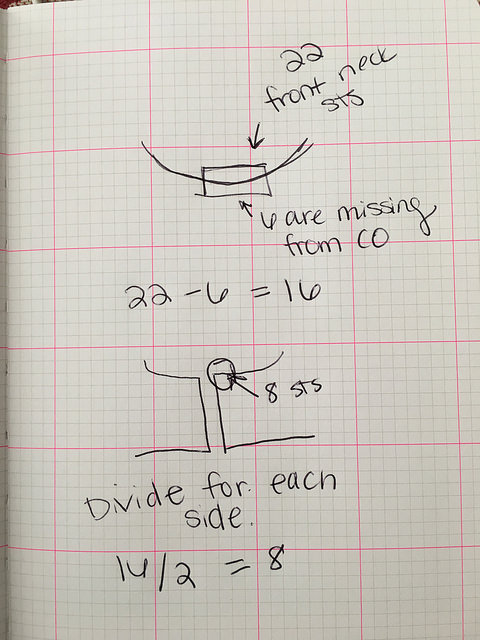 22
front neck
sts
6 are missing
from CO
22 - 6 = 16
8 sts
Divide for each
side.
16/2 = 8